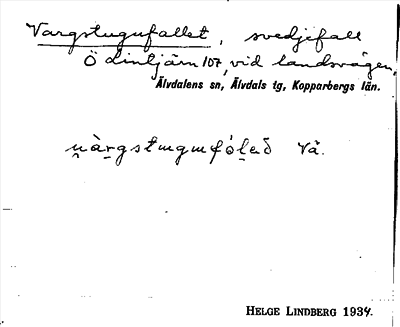 Vargstugufallet, svedjefall
Ö Linltjärn 107, vid landsvägen,
Älvdalens sn, Älvdals tg, Kopparbergs län.
Vå.
HELGE LINDBERG 1934.